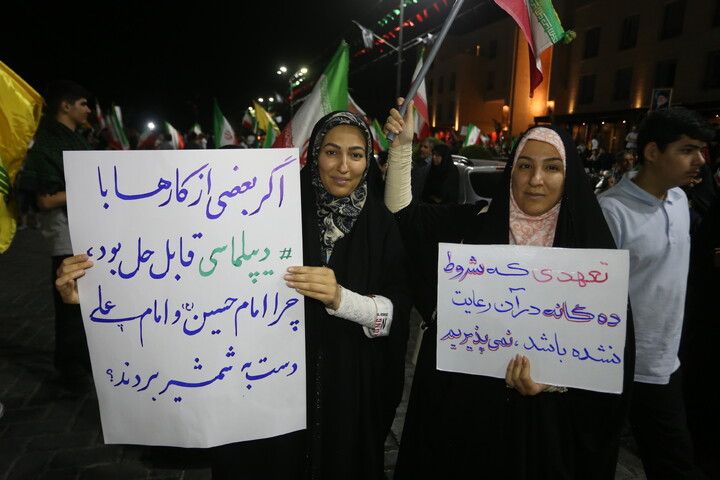 اگر بعضی از کارها با
# دیپلماسی قابل حل بود،
چرا امام حسین(ع) و امام علی
دست به شمشیر بردند؟
تعهدی که بشروط
ده گانه در آن رعایت
نشده باشد، نمی پذیریم